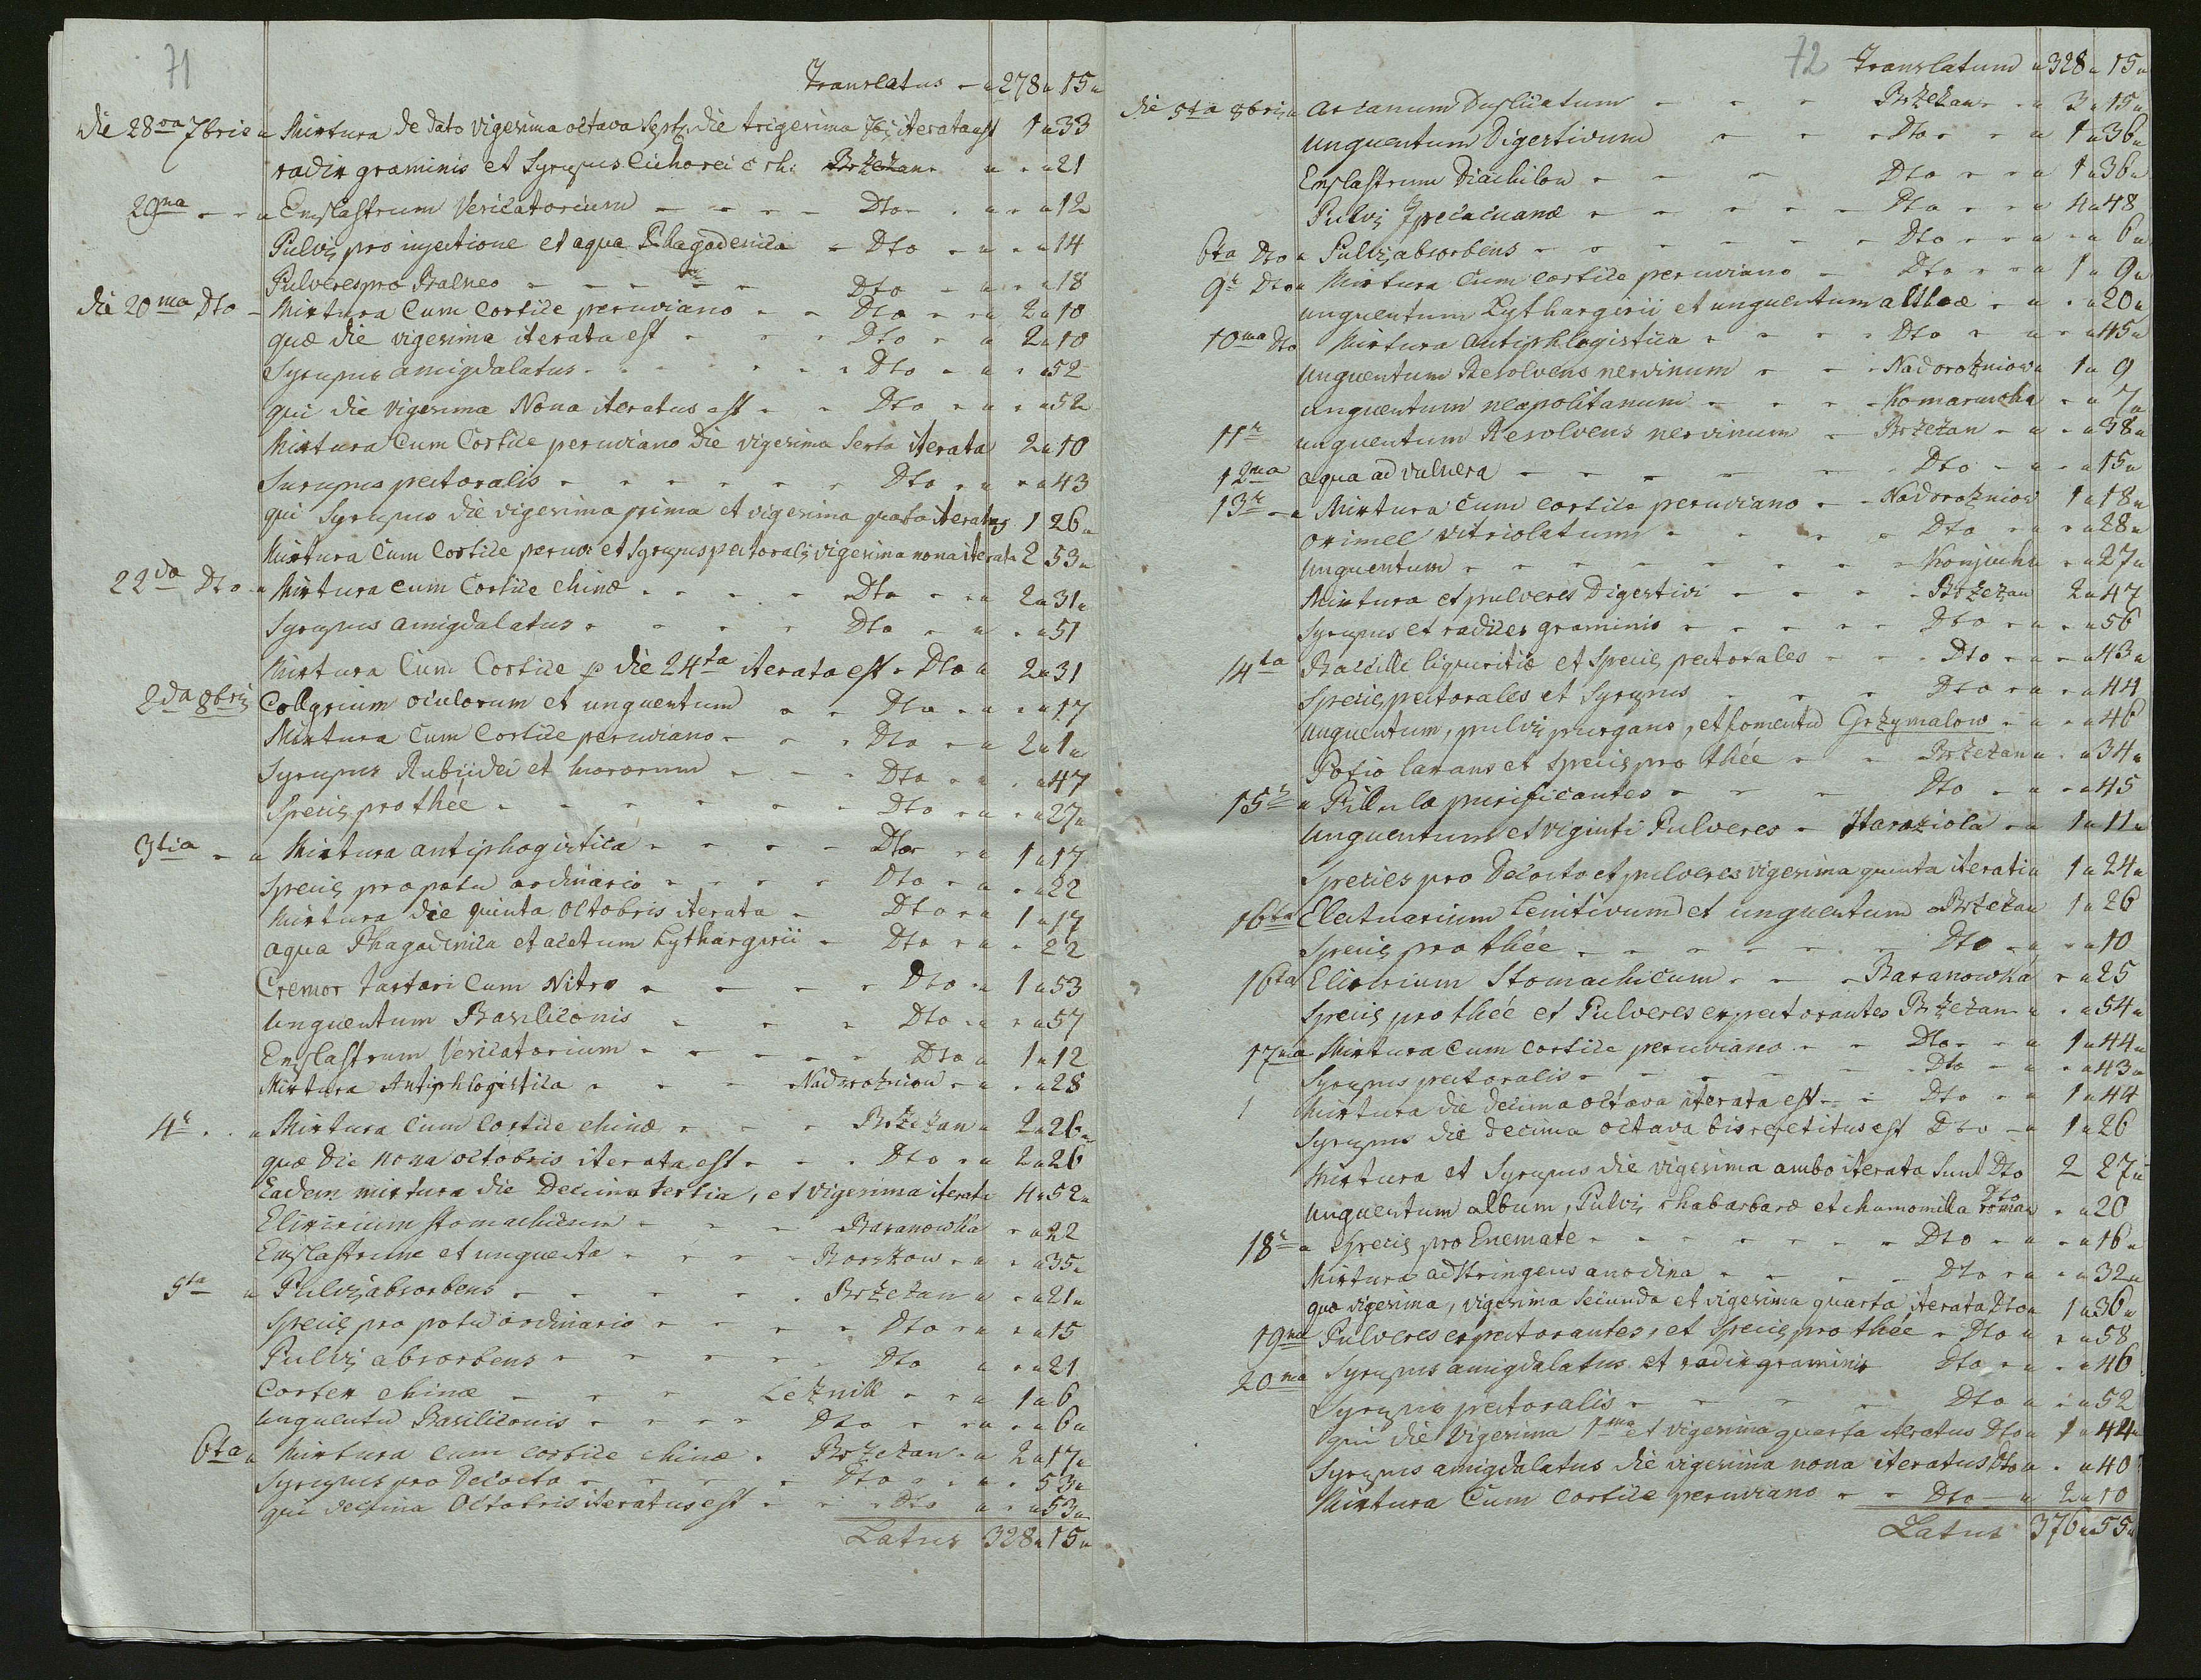 71
Translatus - " 278 " 15 "
Die 28va 7bris " Mixtura de dato vigesima octava Septr. die trigesima 7br iterata est 1 " 33
radix graminis et Syrupus Cichorei c rh: Brzezan - " - " 21
29na - - " Emplastrum Vesicatorium - - - - Dto - . " - " 12
Pulvis pro injectione et aqua Phagadenica - Dto - " - " 14
Pulveres pro Balneo - - - - - Dto - " - " 18
Die 20ma Dto - Mixtura Cum Cortice peruviano - - Dto - - " 2 " 10
quæ die vigesima iterata est - - - Dto - " 2 " 10
Syrupus amigdalatus - - - - - - Dto - " - " 52
qui die vigesima Nona iteratus est - - Dto - " - " 52
Mixtura Cum Cortice peruviano Die vigesima Sexta iterata 2 " 10
Surupus pectoralis - - - - - - - Dto - " - " 43
qui Syrupus die vigesima prima et vigesima quarta iteratus 1 26 "
Mixtura Cum Cortice peruv et Syrupus pectoralis vigesima nona iterata 2 53 "
22da Dto - " Mixtura cum Cortice chinæ - - - - Dto - - " 2 " 31 "
Syrupus amigdalatus - - - - Dto - " - " 51
Mixtura Cum Cortice p die 24ta iterata est - Dto " 2 " 31
2da 8bris Collyrium oculorum et unguentum - - Dto - " - " 17
Mixtura Cum Cortice peruviano - - - Dto - " 2 " 1 "
Syrupus Rubijdei et mororum - - - Dto - " - " 47
Species pro thée - - - - - - - Dto - " - " 27 "
3tia - " Mixtura antiphogistica - - - - Dto - " 1 " 17
Species pro potu ordinario - - - - Dto - " - " 22
Mixtura die quinta Octobris iterata - Dto - " 1 " 17
aqua Phagadenica et acetum Lythargirii - Dto - " - 22
Cremor tartari Cum Nitro - - - - Dto - " 1 " 53
unguentum Basiliconis - - - Dto - " - " 57
Emplastrum Vesicatorium - - - - - Dto " 1 " 12
Mixtura Antiphlogistica - - - - Nadorozniow - " - " 28
4r - . " Mixtura Cum Cortice chinæ - - - Brzezan " 2 " 26 "
quæ Die nona octobris iterata est - - - Dto - " 2 " 26
Eadem mixtura die Decima tertia, et vigesima iterata 4 " 52 "
Elixirium stomachicum - - - Baranowka - " 22
Emplastrum et unguenta - - - - Borszow - " - " 35 "
5ta " Pulvis absorbens - - - - - - Brzezan " - " 21 "
Species pro potu ordinario - - - - - Dto - " - " 15
Pulvis absorbens - - - - - - Dto " - " 21
Cortex chinæ - - - Leznik - - " 1 " 6
unguentu Basiliconis - - - - Dto - - " - " 6 "
6ta " Mixtura cum cortice chinæ - Brzezan - " 2 " 17 "
Syrupus pro Decocto - - - - - Dto - - " - 53 "
qui decima Octobris iteratus est - - - Dto " - " 53 "
Latus 328 " 15 "
72 Translatum " 328 " 15 "
Die 5ta 8bris " arcanum Duplicatum - - - Brzezan - " 3 " 15 "
unguentum Digestivum - - - Dto - - " 1 " 36 "
Emplastrum Diachilon - - - Dto - - " 1 " 36 "
Pulvis Jpecacuanæ - - - - - Dto - - " 4 " 48
6ta Dto " Pulvis absorbens - - - - - - Dto - - " - " 6 "
9r Dto " Mixtura Cum cortice peruviano - Dto - - " 1 " 9 "
unguentum Lythargirii et unguentum altheæ - " - " 20 "
10ma Dto Mixtura antiphlogistica - - - - Dto - " - " 45 "
unguentum Resolvens nervinum - - - Nadorozniow " 1 " 9
unguentum neapolitanum - - - - Komarowka - " 7 "
11r unguentum Resolvens nervinum - Brzezan - " - " 38 "
12ma aqua ad vulnera - - - - - - Dto - " - " 15 "
13r - " Mixtura Cum cortice peruviano - - Nadorozniow 1 " 18 "
oximel vitriolatum - - - - - Dto - " - " 28 "
unguentum - - - - - - - - Konjucha - " 27 "
Mixtura et pulveres Digestivi - - - - Brzezan 2 " 47
Syrupus et radices graminis - - - - - Dto - " - " 56
14ta Bacilli liquiritiæ et Species pectorales - - - Dto - " - " 43 "
Species pectorales et Syrupus - - - Dto - " - " 44
unguentum, pulvis purgans, et fomentu Grzymalow - " - " 46
Potio laxans et Species pro thée - - - Brzezan " - " 34 "
15r " Pillula purificantes - - - - Dto - " - " 45
unguentum et viginti Pulveres - Haraziola - " 1 " 11 "
Species pro Decocto et pulveres vigesima quinta iterati " 1 " 24 "
16ta Electuarium Lenitivum et unguentum - Brzezan 1 " 26
Species pro thée - - - - - - - Dto - " - " 10
16ta Elixirium Stomachicum - - - Baranowka - " 25
Species pro thée et Pulveres expectorantes Brzezan - " - " 54 "
17ma Mixtura Cum cortice peruviano - - Dto - - " 1 " 44 "
Syrupus pectoralis - - - - - - Dto - " - " 43 "
Mixtura die decima octava iterata est - - Dto - " 1 " 44
Syrupus die decima octava bis repetitus est Dto - " 1 " 26
Mixtura et Syrupus die vigesima ambo iterata sunt Dto 2 27 "
unguentum album, Pulvis rhabarbaræ et chamomilla roman Dto - " 20
18r " Species pro Enemate - - - - - - - Dto - " - " 16 "
Mixtura adstringens anodina - - - - Dto - " - " 32 "
quæ vigesima, vigesima secunda et vigesima quarta iterata Dto " 1 " 36 "
19na Pulveres expectorantes, et Species pro thée - Dto " - " 58
20ma Syrupus amigdalatus et radix graminis Dto - " - " 46
Syrupus pectoralis - - - - - Dto " - " 52
qui die Vigesima 1ma et vigesima quarta iteratus Dto " 1 " 44 "
Syrupus amigdalatus die vigesima nona iteratus Dto " - " 40
Mixtura Cum cortice peruviano - - Dto - " 2 " 10
Latus 376 " 55 "